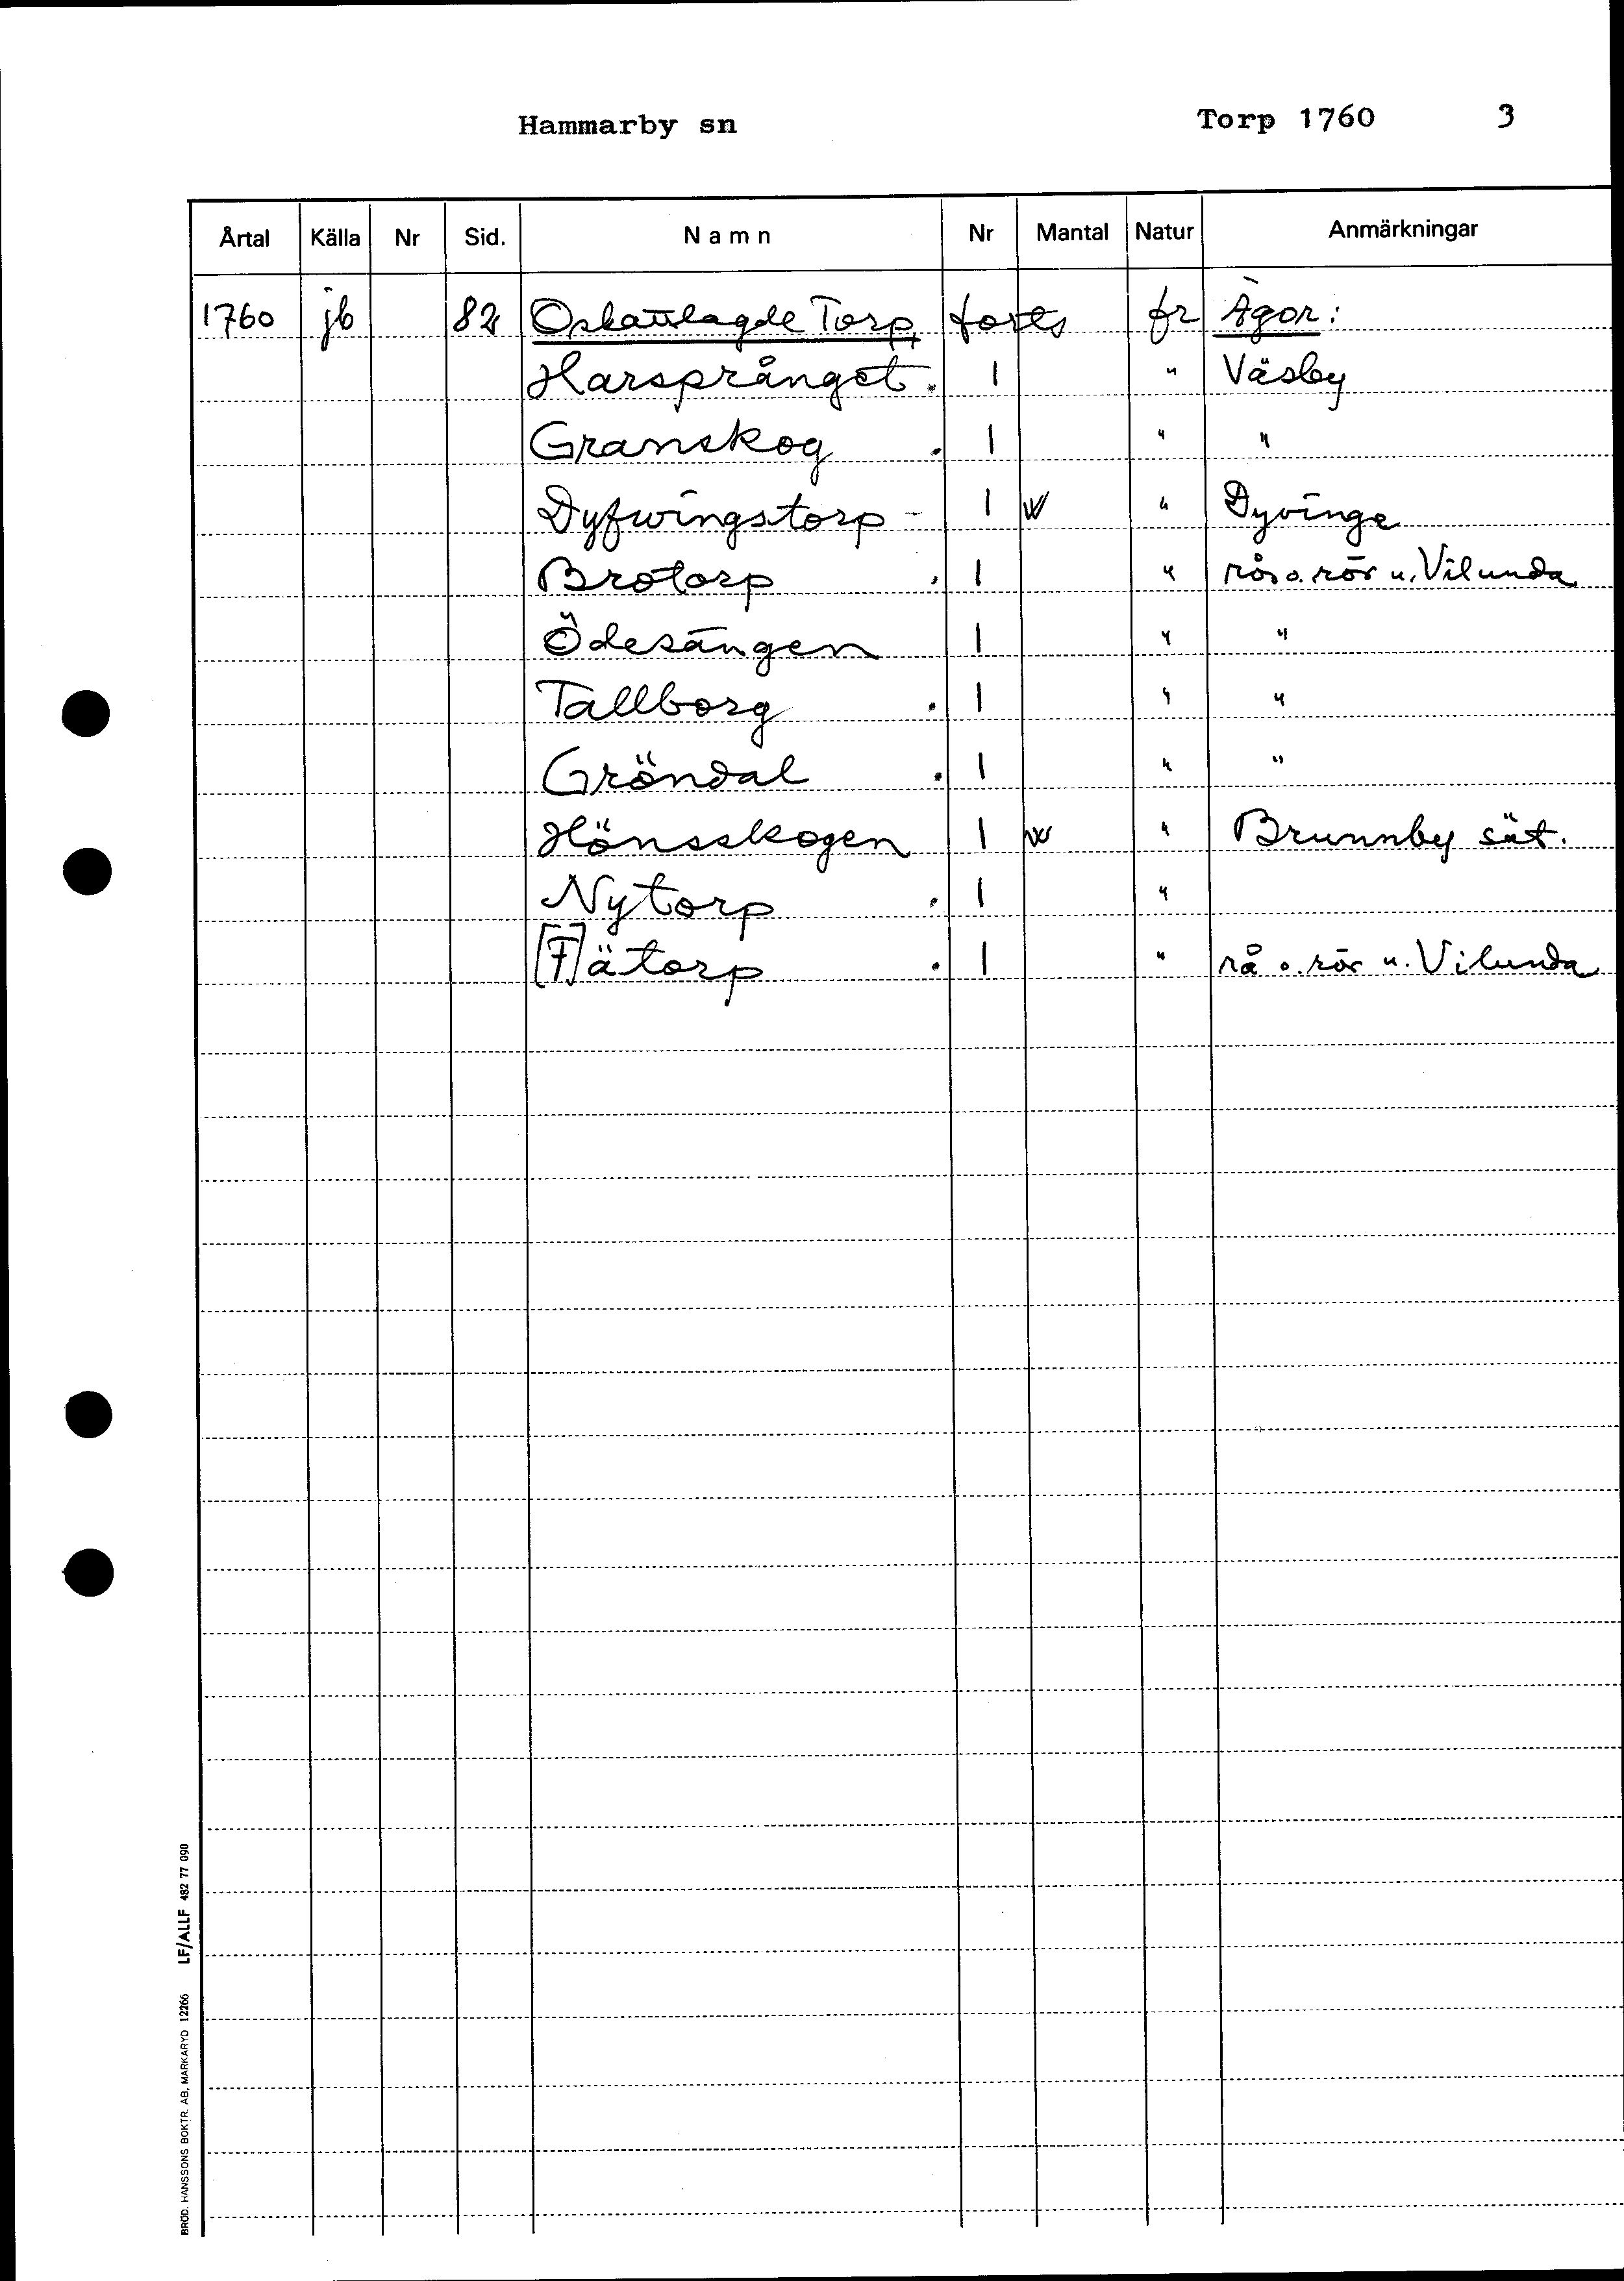 Hammarby sn Torp 1760 3
Årtal Källa Nr Sid. Namn Nr Mantal Natur Anmärkningar
1760 jb 82 Oskattlagde Torp forts fr Ägor:
Harsprånget . 1 " Väsby
Granskog . 1 " "
Dyfwingstorp - 1 W " Dyvinge
Brotorp . 1 " rås o. rör u. Vilunda
Ödesängen 1 " "
Tallborg . 1 " "
Gröndal . 1 " "
Hönsskogen 1 W " Brunnby sät.
Nytorp . 1 "
[F]ätorp . 1 " rå o. rör u. Vilunda
BRÖD. HANSSONS BOKTR. AB, MARKARYD 12266 LF/ALLF 482 77 090